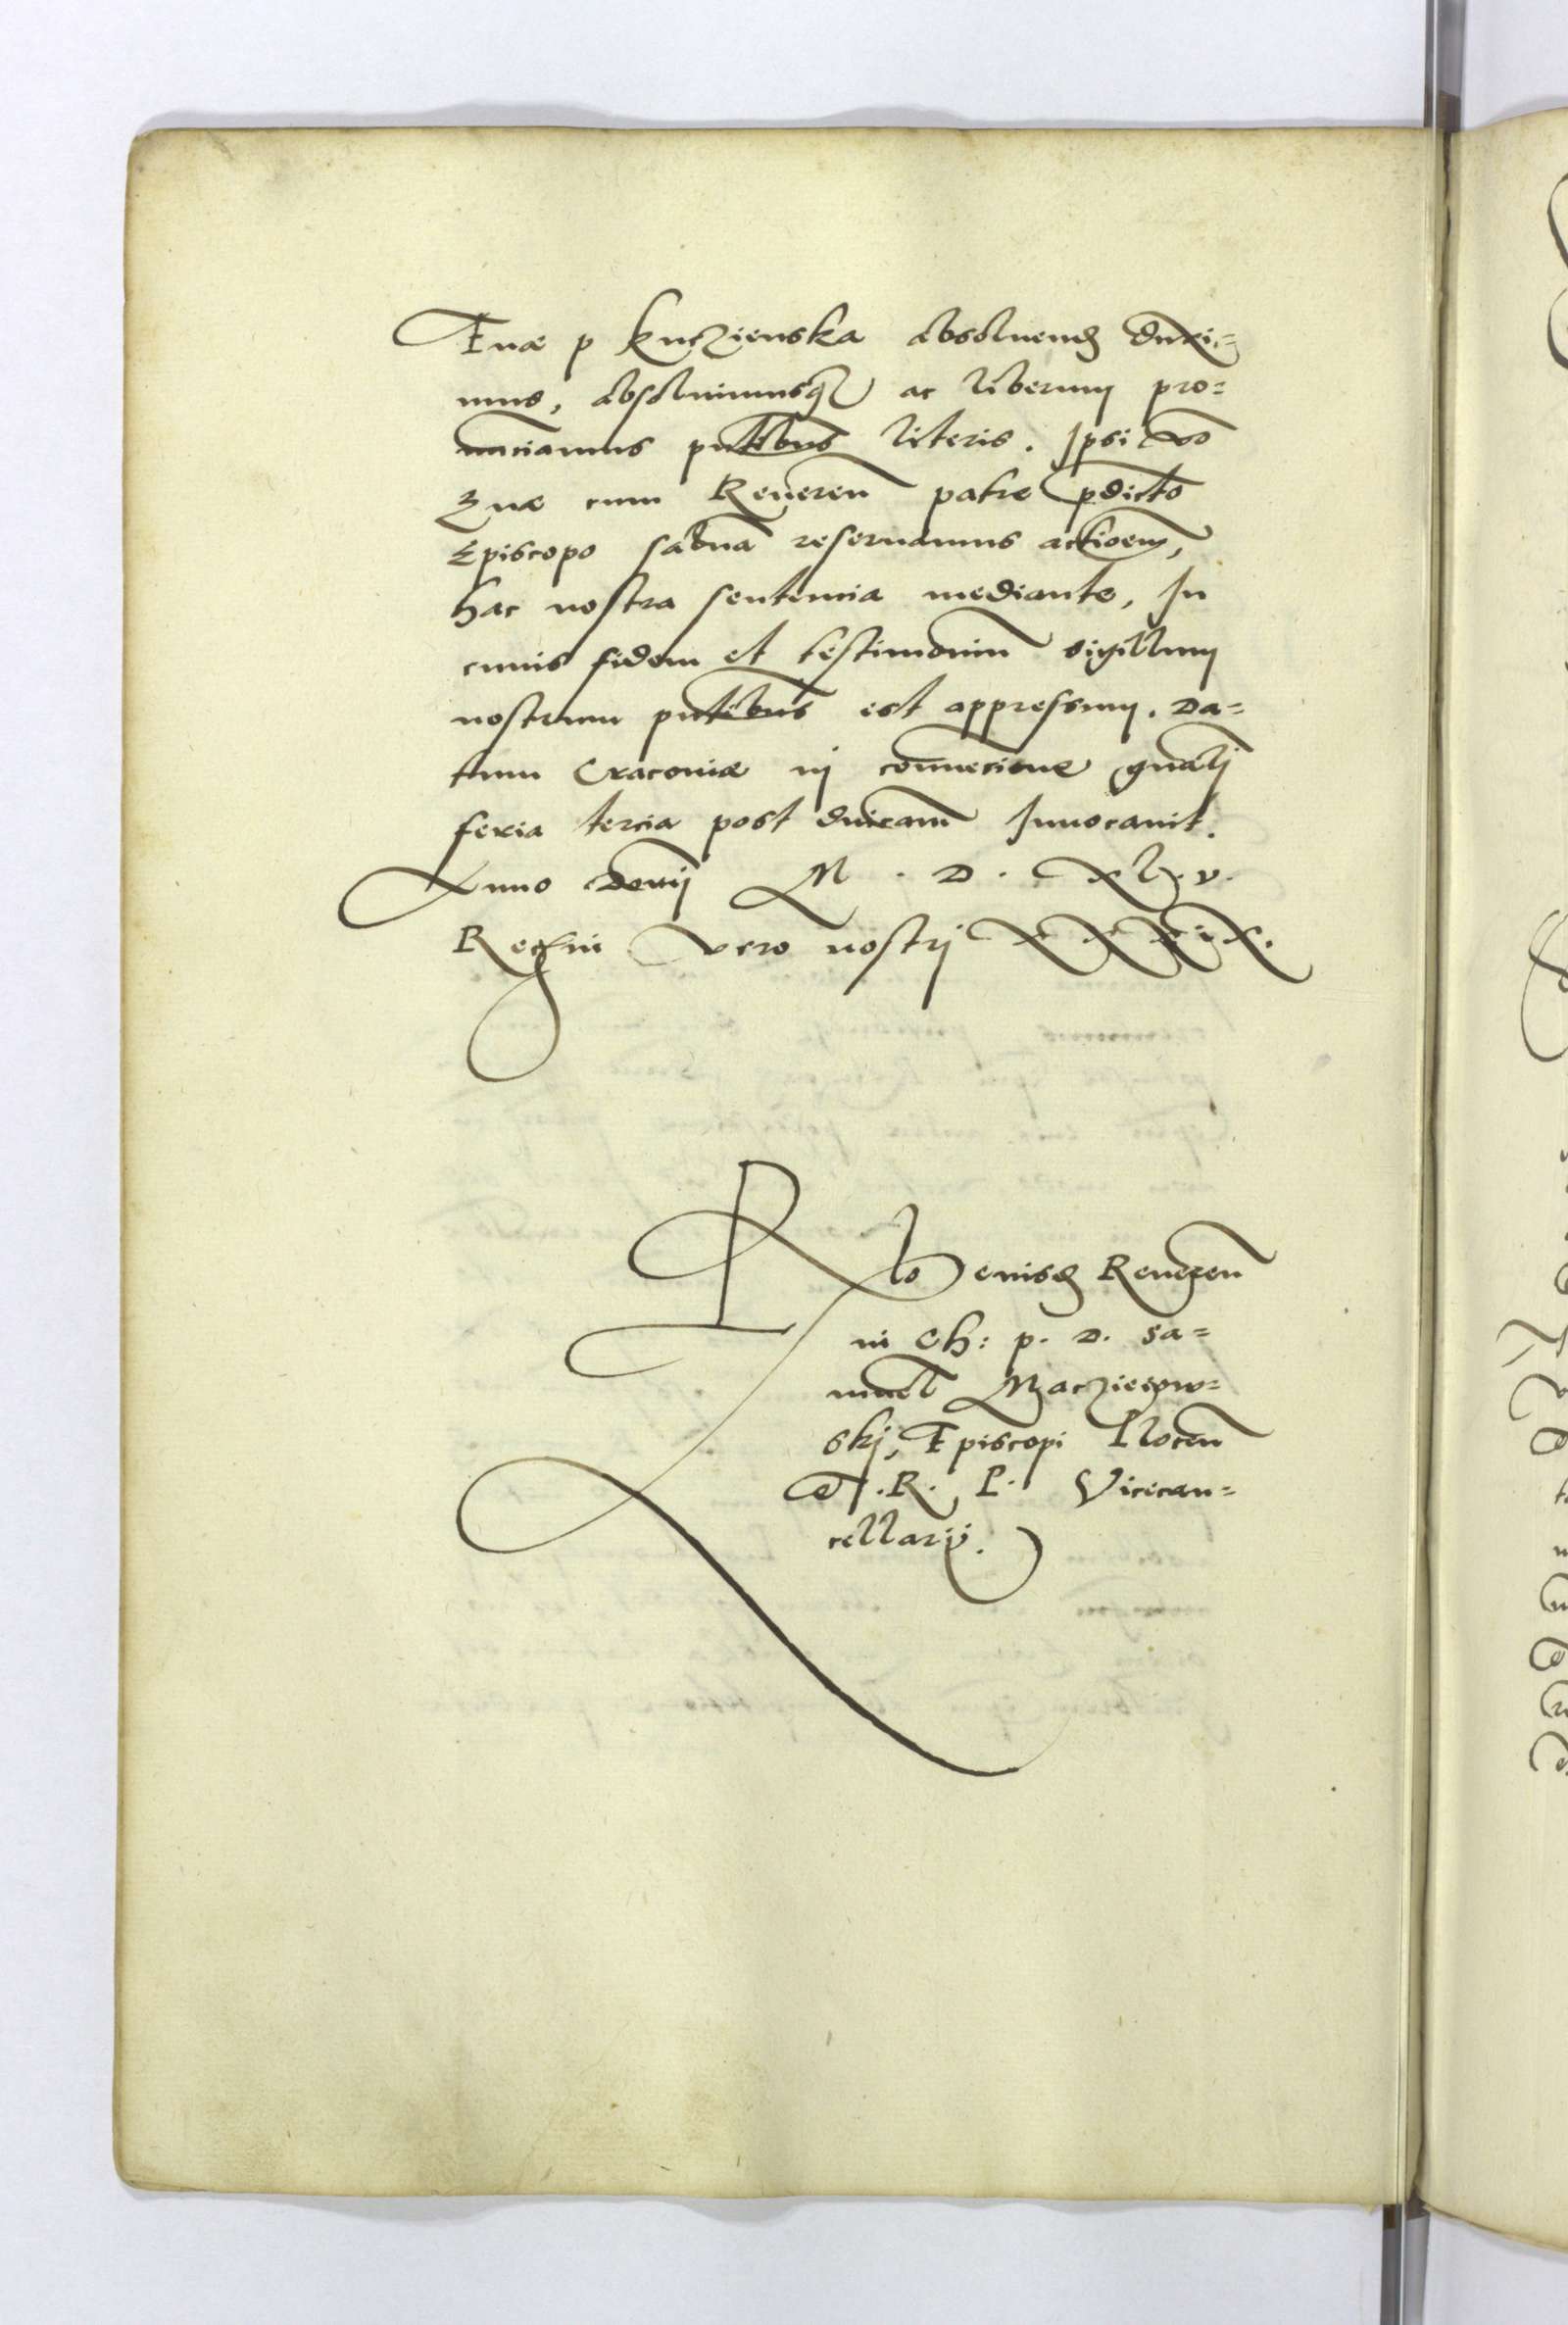 Euæ p Kuczienska absoluend duxi=
mus, absoluimusq ac liberum pro=
nunciamus pntibus literis. Ipsi vo
Euæ cum Reueren patre pdicto
Episcopo saluã reseruamus actioem,
hac nostra sentencia mediante, In
cuius fidem et testimonium sigillum
nostrum pntibus est appressum. Da=
tum Cracoviæ in conuencione gnali
feria tercia post dnicam Inuocauit.
Anno Domij M . D . xl . v .
Regnj vero nostrj xxxix.
Relo eiusd Reueren
in Ch: p. D. Sa=
muel Macziejow=
skj, Episcopi Plocen
et .R. P. Vicecan=
cellarij.